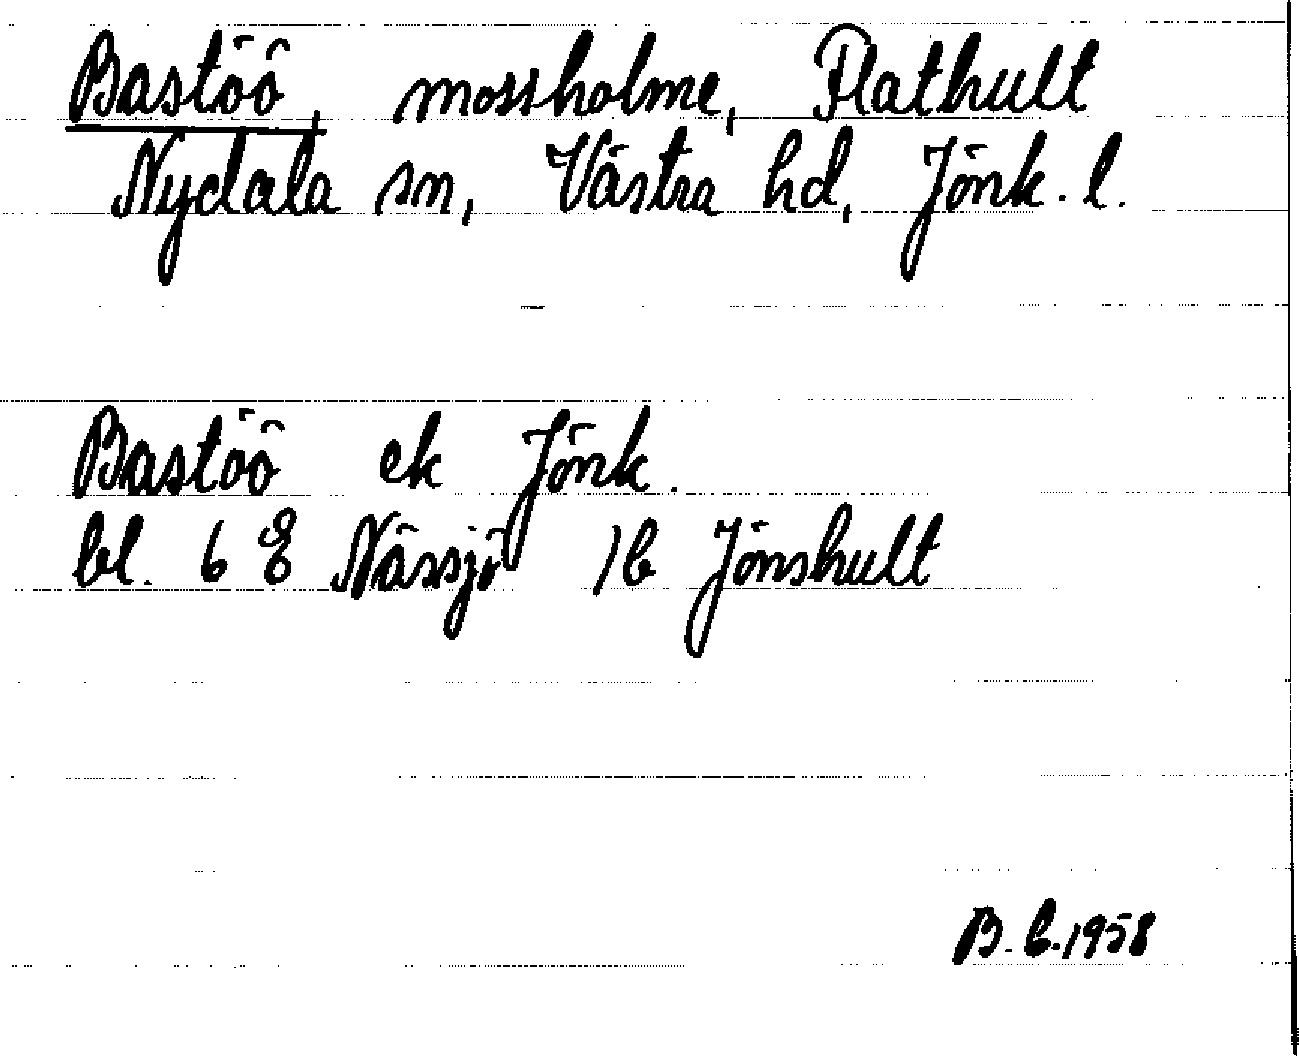 Bastöö, mossholme, Flathult
Nydala sn, Västra hd, Jönk. l.
Bastöö ek Jönk.
bl. 6 E Nässjö 1b Jönshult
B. E. 1958